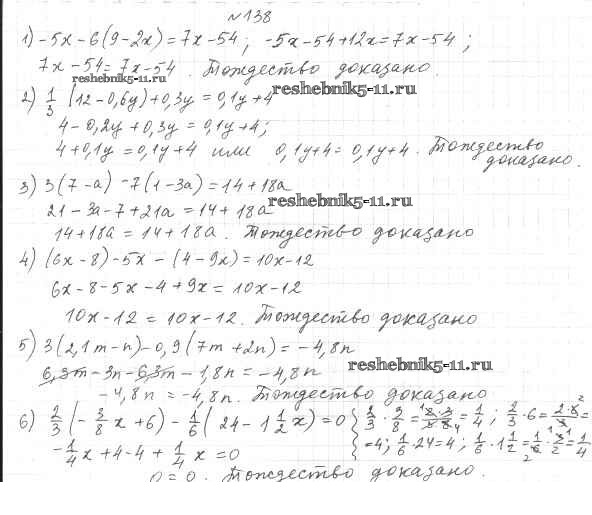 №138
1) -5x-6(9-2x)=7x-54; -5x-54+12x=7x-54;
7x-54=7x-54. Тождество доказано.
reshebnik5-11.ru
2) 1/3 (12-0,6y)+0,3y=0,1y+4
reshebnik5-11.ru
4-0,2y+0,3y=0,1y+4;
4+0,1y=0,1y+4 или 0,1y+4=0,1y+4. Тождество
доказано.
3) 3(7-a)-7(1-3a)=14+18a
reshebnik5-11.ru
21-3a-7+21a=14+18a
14+18a=14+18a. Тождество доказано
4) (6x-8)-5x-(4-9x)=10x-12
6x-8-5x-4+9x=10x-12
10x-12=10x-12. Тождество доказано
5) 3(2,1m-n)-0,9(7m+2n)=-4,8n
reshebnik5-11.ru
6,3m-3n-6,3m-1,8n=-4,8n
-4,8n=-4,8n. Тождество доказано.
6) 2/3(-3/8x+6)-1/6(24-1 1/2x)=0 { 2/3·3/8=2·3/3·8=1/4; 2/3·6=2·6/3=
-1/4x+4-4+1/4x=0 =4; 1/6·24=4; 1/6·1 1/2=1/6·3/2=1/4
0=0. Тождество доказано.